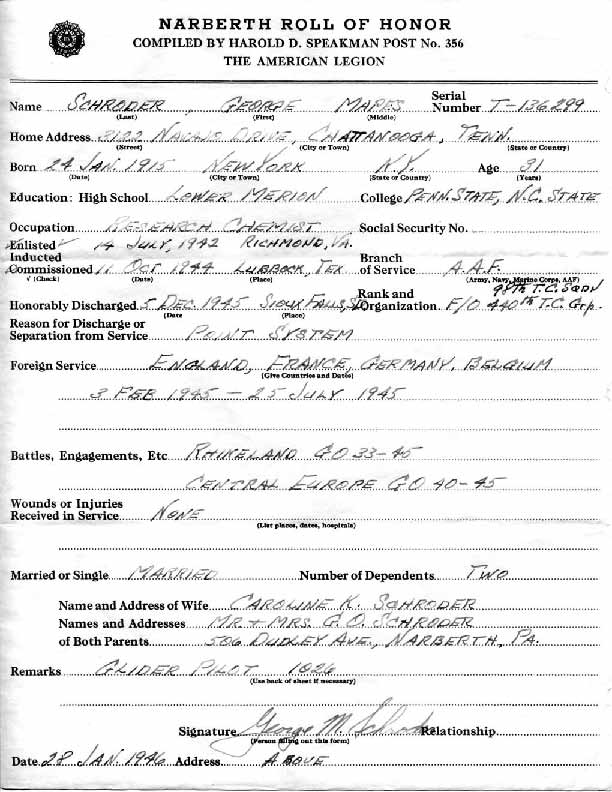 NARBERTH ROLL OF HONOR
COMPILED BY HAROLD D. SPEAKMAN POST No. 356
THE AMERICAN LEGION
Name SCHRODER, GEORGE MAPES Serial Number T-136299
(Last) (First) (Middle)
Home Address 2122 NAVAJO DRIVE, CHATTANOOGA, TENN.
(Street) (City or Town) (State or Country)
Born 24 JAN. 1915 NEW YORK N.Y. Age 31
(Date) (City or Town) (State or Country) (Years)
Education: High School LOWER MERION College PENN. STATE, N.C. STATE
Occupation RESEARCH CHEMIST Social Security No.
Enlisted √ 14 JULY, 1942 RICHMOND, VA.
Inducted Branch
Commissioned 11 OCT 1944 LUBBOCK, TEX of Service A.A.F.
√ (Check) (Date) (Place) (Army, Navy, Marine Corps, AAF)
Rank and 98th T.C. SQDN
Honorably Discharged 5 DEC. 1945 SIOUX FALLS, SD Organization F/O 440th T.C. Grp.
(Date (Place)
Reason for Discharge or
Separation from Service POINT SYSTEM
Foreign Service ENGLAND, FRANCE, GERMANY, BELGIUM
(Give Countries and Dates)
3 FEB 1945 - 25 JULY 1945
Battles, Engagements, Etc RHINELAND GO 33-45
CENTRAL EUROPE GO 40-45
Wounds or Injuries
Received in Service NONE
(List places, dates, hospitals)
Married or Single MARRIED Number of Dependents TWO
Name and Address of Wife CAROLINE K. SCHRODER
Names and Addresses MR. + MRS. G.O. SCHRODER
of Both Parents 506 DUDLEY AVE., NARBERTH, PA.
Remarks GLIDER PILOT 1026
(Use back of sheet if necessary)
Signature George M. Schroder Relationship
(Person filling out this form)
Date 28 JAN. 1946 Address ABOVE